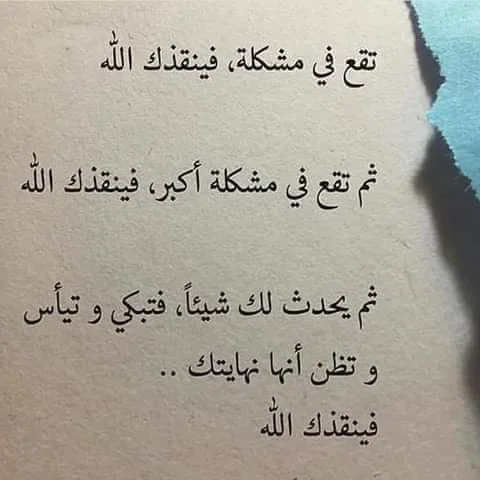 تقع في مشكلة، فينقذك الله
ثم تقع في مشكلة أكبر، فينقذك الله
ثم يحدث لك شيئاً، فتبكي و تيأس
و تظن أنها نهايتك ..
فينقذك الله